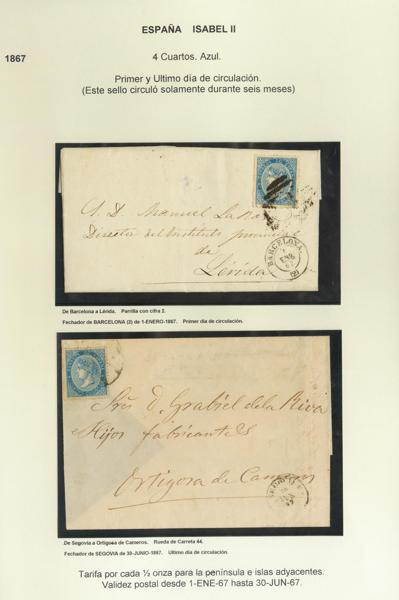 ESPAÑA ISABEL II
1867
4 Cuartos. Azul.
Primer y Ultimo día de circulación.
(Este sello circuló solamente durante seis meses)
A. D. Manuel
Director del Instituto
de
Lérida
BARCELONA
ENE
(2)
De Barcelona a Lérida. Parrilla con cifra 2.
Fechador de BARCELONA (2) de 1-ENERO-1867. Primer día de circulación.
Sres D. Grabiel de la Riva
e Hijos fabricantes
Ortigosa de Cameros
De Segovia a Ortigosa de Cameros. Rueda de Carreta 44.
Fechador de SEGOVIA de 30-JUNIO-1867. Ultimo día de circulación.
Tarifa por cada ½ onza para la península e islas adyacentes.
Validez postal desde 1-ENE-67 hasta 30-JUN-67.